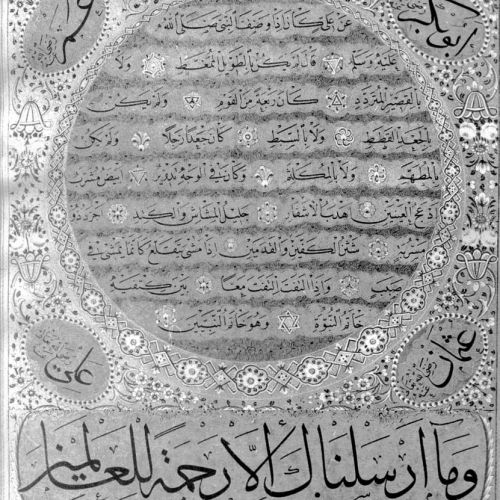 ابو بكر
عمر
عن علي كان اذا وصف النبي صلى الله
عليه وسلم قال لم يكن بالطويل الممغط ولا
بالقصير المتردد كان ربعة من القوم ولم يكن
بالجعد القطط ولا بالسبط كان جعدا رجلا ولم يكن
بالمطهم ولا بالمكلثم وكان في الوجه تدوير ابيض مشرب
ادعج العينين اهدب الاشفار جليل المشاش والكتد اجرد ذو
مسربة شثن الكفين والقدمين اذا مشى يتقلع كانما يمشي في
صبب واذا التفت التفت معا بين كتفيه
خاتم النبوة وهو خاتم النبيين
عثمان
علي
وما ارسلناك الا رحمة للعالمين